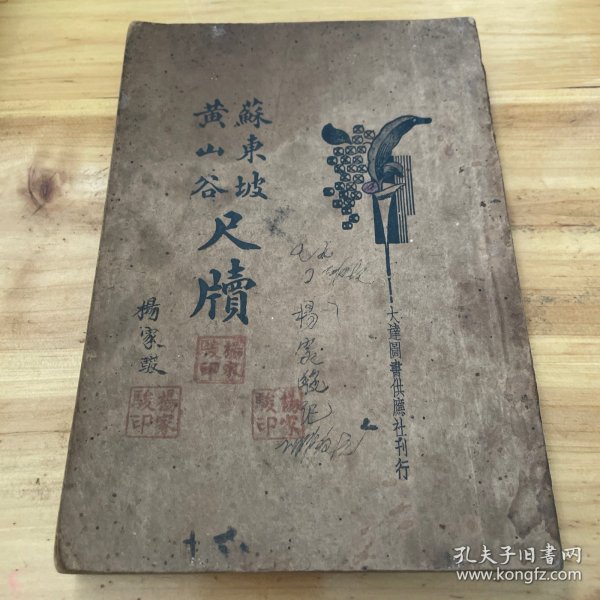 蘇東坡
黃山谷
尺牘
大達圖書供應社刊行
楊家駿
楊家駿印
楊家駿印
楊家駿印
孔夫子旧书网
www.kongfz.com